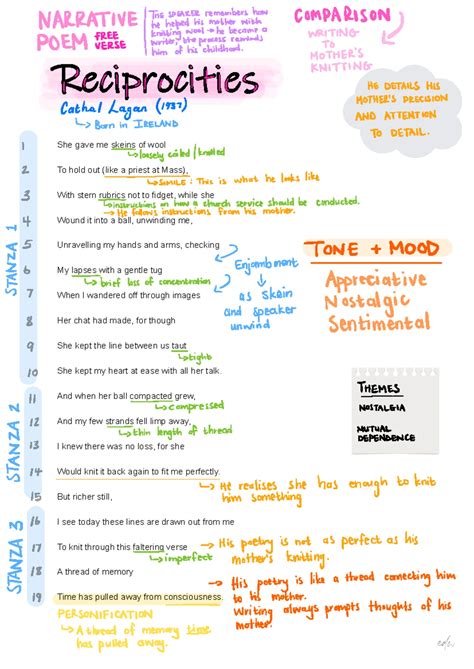 NARRATIVE
POEM FREE
VERSE
THE SPEAKER remembers how
he helped his mother with
knitting wool → he became a
writer, the process reminds
him of his childhood.
COMPARISON
WRITING
TO
MOTHER'S
KNITTING
Reciprocities
Cathal Lagan (1937)
↳ Born in IRELAND
HE DETAILS HIS
MOTHER'S PRECISION
AND ATTENTION
TO DETAIL.
STANZA 1
1 She gave me skeins of wool
↳ loosely coiled / knotted
2 To hold out (like a priest at Mass),
↳ SIMILE: This is what he looks like
3 With stern rubrics not to fidget, while she
↳ instructions on how a church service should be conducted.
↳ He follows instructions from his mother.
4 Wound it into a ball, unwinding me,
5 Unravelling my hands and arms, checking
6 My lapses with a gentle tug
↳ brief loss of concentration
7 When I wandered off through images
Enjambment
↓
as skein
and speaker
unwind
8 Her chat had made, for though
9 She kept the line between us taut
↳ tight
10 She kept my heart at ease with all her talk.
TONE + MOOD
Appreciative
Nostalgic
Sentimental
THEMES
NOSTALGIA
MUTUAL
DEPENDENCE
STANZA 2
11 And when her ball compacted grew,
↳ compressed
12 And my few strands fell limp away,
↳ thin length of thread
13 I knew there was no loss, for she
14 Would knit it back again to fit me perfectly.
↳ He realises she has enough to knit
him something
15 But richer still,
STANZA 3
16 I see today these lines are drawn out from me
17 To knit through this faltering verse
↳ imperfect
→ His poetry is not as perfect as his
mother's knitting.
18 A thread of memory
19 Time has pulled away from consciousness.
→ His poetry is like a thread connecting him
to his mother.
Writing always prompts thoughts of his
mother.
PERSONIFICATION
↳ A thread of memory time
has pulled away.